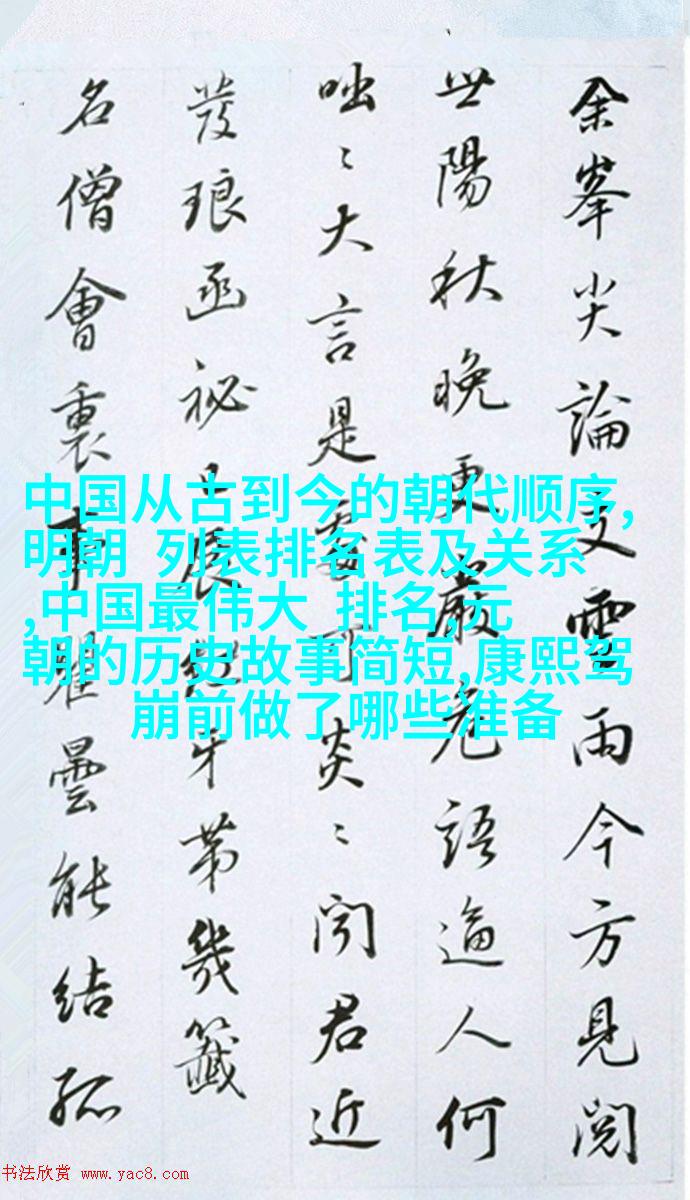 余峯尖論文雲雨今方見閱
世陽秋晚更嚴危語逼人何
咄〻大言是可炎〻聞君近
發琅函祕展牙第幾籤
名僧會裏事瞿曇能結孤
中国从古到今的朝代顺序,
明朝 列表排名表及关系
,中国最伟大 排名,元
朝的历史故事简短,康熙驾
崩前做了哪些准备
书法欣赏 www.yac8.com